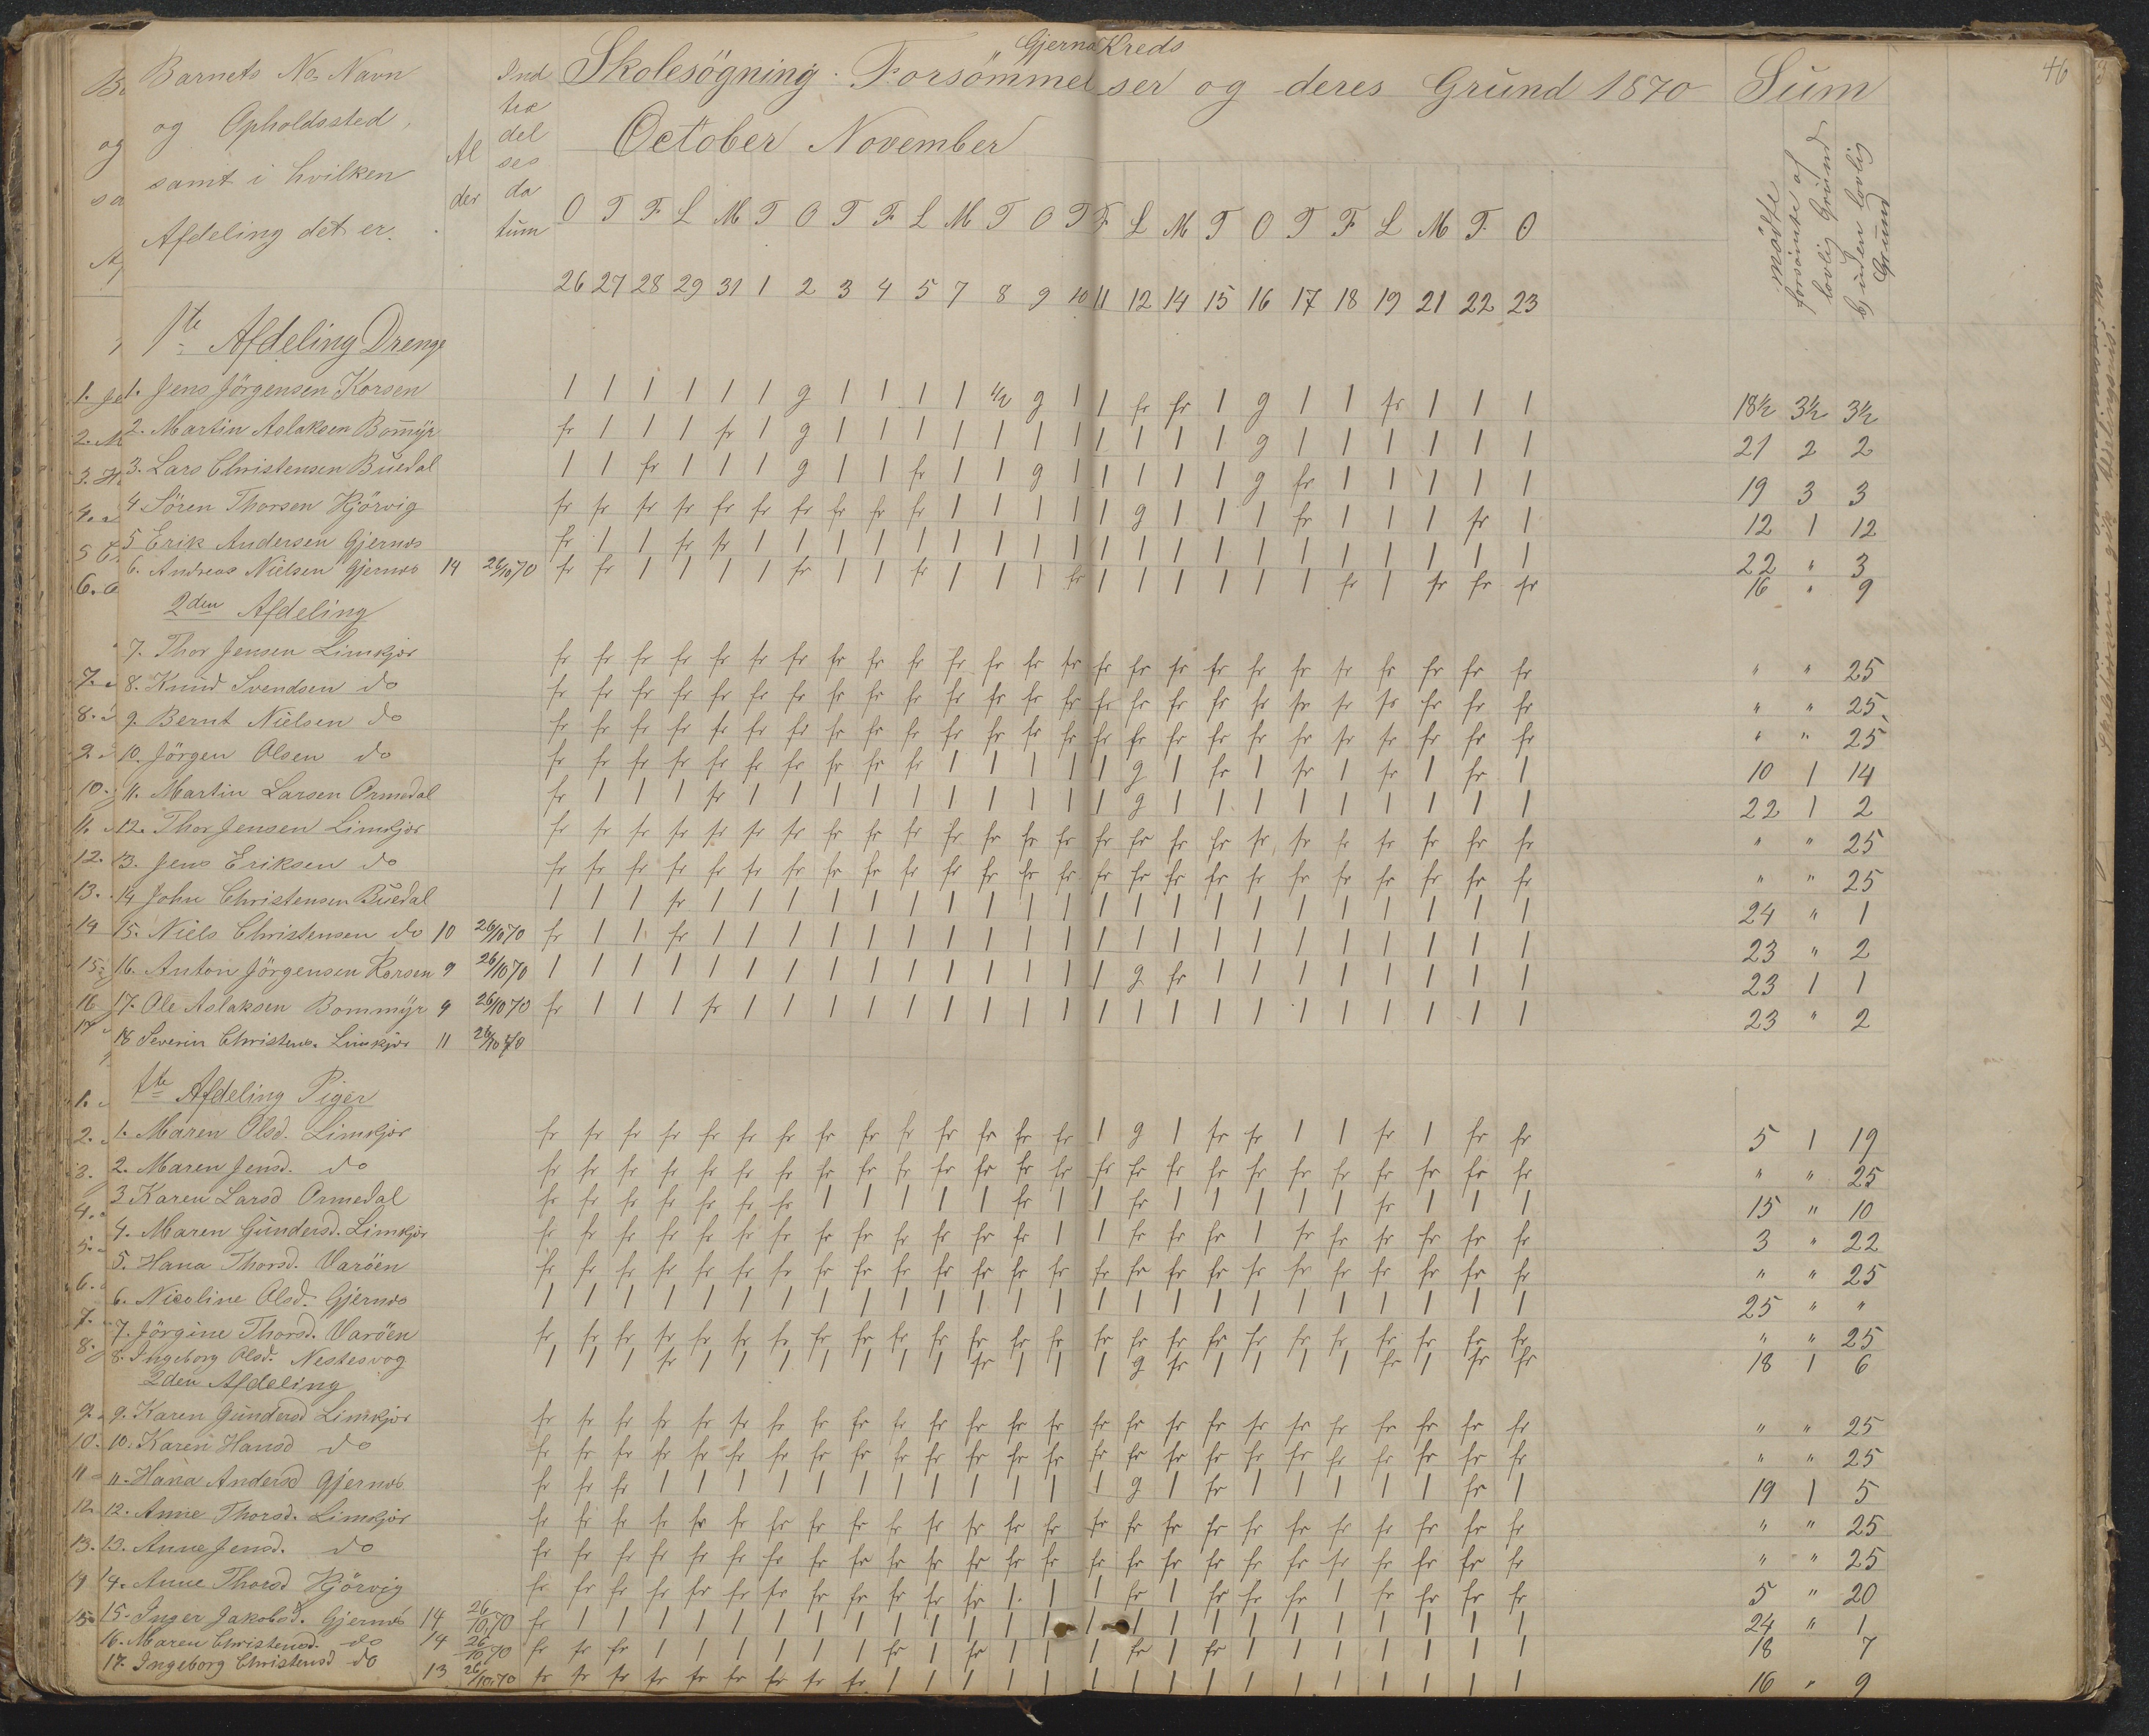 Gjernæs Kreds
Barnets No, Navn og Opholdssted, samt i hvilken Afdeling det er.
Al der
Ind træ del ses da tum
Skolesögning. Forsömmelser og deres Grund 1870
Sum
46
October November
mödte
forsömte af lovlig Grund
b, uden lovlig Grund
O T F L M T O T F L M T O T F L M T O T F L M T O
26 27 28 29 31 1 2 3 4 5 7 8 9 10 11 12 14 15 16 17 18 19 21 22 23
1te Afdeling Drenge
1. Jens Jörgensen Korsen 1 1 1 1 1 1 g 1 1 1 1 1/2 g 1 1 fr fr 1 g 1 1 fr 1 1 1 18½ 3½ 3½
2. Martin Aslaksen Bom̄yr fr 1 1 1 fr 1 g 1 1 1 1 1 1 1 1 1 1 1 g 1 1 1 1 1 1 21 2 2
3. Lars Christensen Buedal 1 1 fr 1 1 1 g 1 1 fr 1 1 g 1 1 1 1 1 g fr 1 1 1 1 1 19 3 3
4 Sören Thorsen Kjörvig fr fr fr fr fr fr fr fr fr fr 1 1 1 1 1 g 1 1 1 fr 1 1 1 fr 1 12 1 12
5 Erik Andersen Gjernæs fr 1 1 fr fr 1 1 1 1 1 1 1 1 1 1 1 1 1 1 1 1 1 1 1 1 22 " 3
6. Andreas Nielsen Gjernæs 14 26/10 70 fr fr 1 1 1 1 fr 1 1 fr 1 1 1 fr 1 1 1 1 1 1 fr 1 fr fr fr 16 " 9
2den Afdeling
7. Thor Jensen Limkjær fr fr fr fr fr fr fr fr fr fr fr fr fr fr fr fr fr fr fr fr fr fr fr fr fr " " 25
8. Knud Svendsen do fr fr fr fr fr fr fr fr fr fr fr fr fr fr fr fr fr fr fr fr fr fr fr fr fr " " 25
9. Bernt Nielsen do fr fr fr fr fr fr fr fr fr fr fr fr fr fr fr fr fr fr fr fr fr fr fr fr fr " " 25
10. Jörgen Olsen do fr fr fr fr fr fr fr fr fr fr 1 1 1 1 1 g 1 fr 1 fr 1 fr 1 fr 1 10 1 14
11. Martin Larsen Ormedal fr 1 1 1 fr 1 1 1 1 1 1 1 1 1 1 g 1 1 1 1 1 1 1 1 1 22 1 2
12. Thor Jensen Limkjær fr fr fr fr fr fr fr fr fr fr fr fr fr fr fr fr fr fr fr fr fr fr fr fr fr " " 25
13. Jens Eriksen do fr fr fr fr fr fr fr fr fr fr fr fr fr fr fr fr fr fr fr fr fr fr fr fr fr " " 25
14 John Christensen Buedal 1 1 1 fr 1 1 1 1 1 1 1 1 1 1 1 1 1 1 1 1 1 1 1 1 1 24 " 1
15. Niels Christensen do 10 26/10 70 fr 1 1 fr 1 1 1 1 1 1 1 1 1 1 1 1 1 1 1 1 1 1 1 1 1 23 " 2
16. Anton Jörgensen Korsen 9 26/10 70 1 1 1 1 1 1 1 1 1 1 1 1 1 1 1 g fr 1 1 1 1 1 1 1 1 23 1 1
17. Ole Aslaksen Bommyr 9 26/10 70 fr 1 1 1 fr 1 1 1 1 1 1 1 1 1 1 1 1 1 1 1 1 1 1 1 1 23 " 2
18 Severin Christens. Limkjær 11 26/10 70
1te Afdeling Piger
1. Maren Olsd. Limkjær fr fr fr fr fr fr fr fr fr fr fr fr fr fr 1 g 1 fr fr 1 1 fr 1 fr fr 5 1 19
2. Maren Jensd. do fr fr fr fr fr fr fr fr fr fr fr fr fr fr fr fr fr fr fr fr fr fr fr fr fr " " 25
3 Karen Larsd Ormedal fr fr fr fr fr fr fr 1 1 1 1 1 fr 1 1 fr 1 1 1 1 1 fr 1 1 1 15 " 10
4. Maren Gundersd. Limkjær fr fr fr fr fr fr fr fr fr fr fr fr fr 1 1 fr fr fr 1 fr fr fr fr fr fr 3 " 22
5. Hana Thorsd. Varöen fr fr fr fr fr fr fr fr fr fr fr fr fr fr fr fr fr fr fr fr fr fr fr fr fr " " 25
6. Nicoline Olsd. Gjernæs 1 1 1 1 1 1 1 1 1 1 1 1 1 1 1 1 1 1 1 1 1 1 1 1 1 25 " "
7. Jörgine Thorsd. Varöen fr fr fr fr fr fr fr fr fr fr fr fr fr fr fr fr fr fr fr fr fr fr fr fr fr " " 25
8. Ingeborg Olsd. Nestesvog 1 1 1 fr 1 1 1 1 1 1 1 fr 1 1 1 g fr 1 1 1 1 fr 1 fr fr 18 1 6
2den Afdeling
9. Karen Gundersd Limkjær fr fr fr fr fr fr fr fr fr fr fr fr fr fr fr fr fr fr fr fr fr fr fr fr fr " " 25
10. Karen Hansd do fr fr fr fr fr fr fr fr fr fr fr fr fr fr fr fr fr fr fr fr fr fr fr fr fr " " 25
11. Hana Andersd Gjernæs fr fr fr 1 1 1 1 1 1 1 1 1 1 1 1 g 1 fr 1 1 1 1 1 fr 1 19 1 5
12. Anne Thorsd. Limkjær fr fr fr fr fr fr fr fr fr fr fr fr fr fr fr fr fr fr fr fr fr fr fr fr fr " " 25
13. Anne Jensd. do fr fr fr fr fr fr fr fr fr fr fr fr fr fr fr fr fr fr fr fr fr fr fr fr fr " " 25
14. Anne Thorsd Kjörvig fr fr fr fr fr fr fr fr fr fr fr fr 1 1 1 fr 1 fr fr fr 1 fr fr fr fr 5 " 20
15. Inger Jakobsd. Gjernæs 14 26/10 70 fr 1 1 1 1 1 1 1 1 1 1 1 1 1 1 1 1 1 1 1 1 1 1 1 1 24 " 1
16. Maren Christensd. do 14 26/10 70 fr fr fr 1 1 1 1 1 1 fr 1 fr 1 1 1 fr 1 fr 1 1 1 1 1 1 1 18 7
17. Ingeborg Christensd do 13 26/10 70 fr fr fr fr fr fr fr fr fr 1 1 1 1 1 1 1 1 1 1 1 1 1 1 1 1 16 " 9